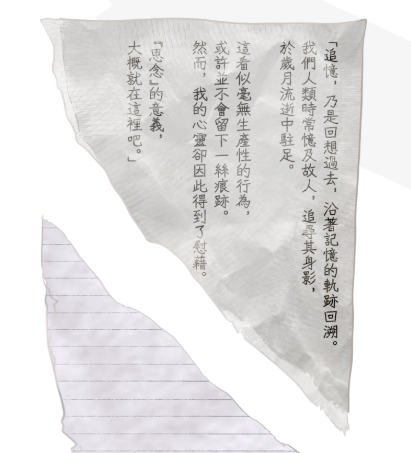 「追憶，乃是回想過去，沿著記憶的軌跡回溯。
我們人類時常憶及故人，追尋其身影，
於歲月流逝中駐足。
這看似毫無生產性的行為，
或許並不會留下一絲痕跡。
然而，我的心靈卻因此得到了慰藉。
『思念』的意義，
大概就在這裡吧。」